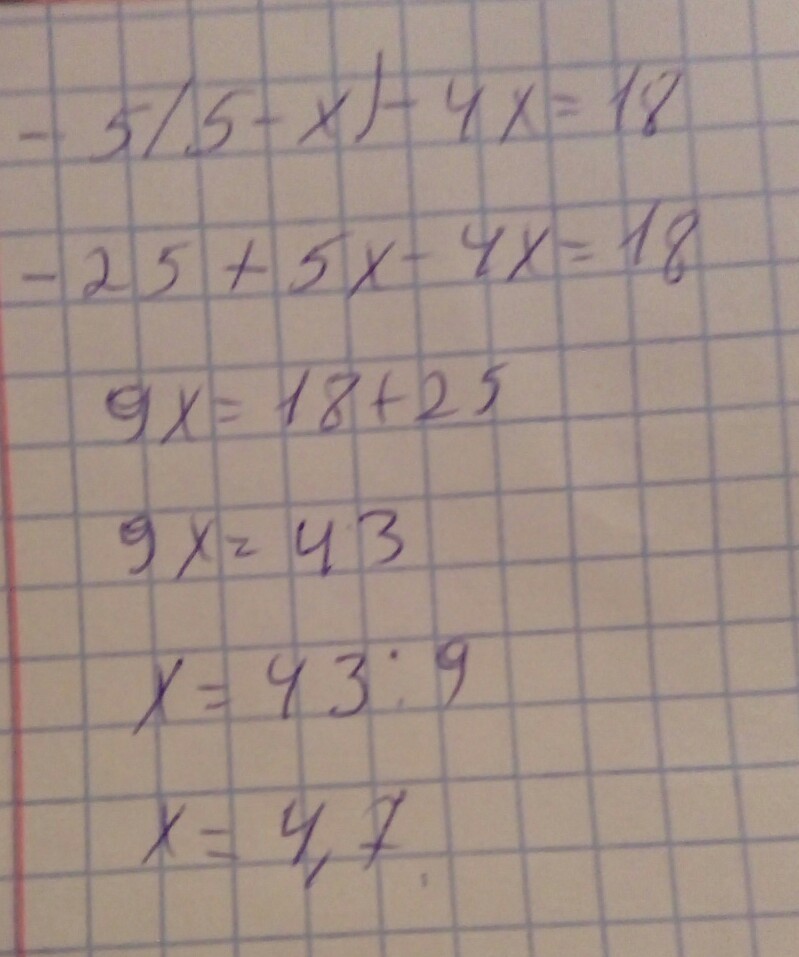 - 5(5 - x) - 4x = 18
- 25 + 5x - 4x = 18
9x = 18 + 25
9x = 43
x = 43 : 9
x = 4,7